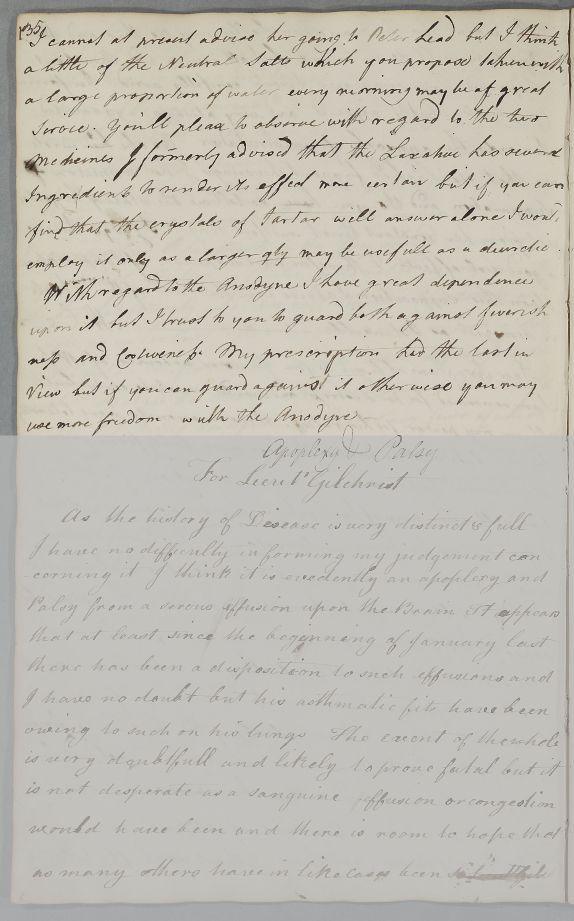 (35)
I cannot at present advise her going to Peter head but I think
a little of the Neutral Salts which you propose taken with
a large proportion of water every morning may be of great
Service. You'll please to observe with regard to the two
Medicines I formerly advised that the Laxative has several
Ingredients to render its effect more certain but if you can
find that the crystals of tartar will answer alone I wou'd
employ it only as a larger qty may be usefull as a diuretic.
With regard to the Anodyne I have great dependence
upon it but I trust to you to guard both against feverish
ness and Costiveness. My prescription had the last in
View but if you can guard against it otherwise you may
use more freedom with the Anodyne
Apoplexy & Palsy
For Lieut Gilchrist
As the history of Disease is very distinct & full
I have no difficulty in forming my judgement con
cerning it I think it is evedently an apoplexy and
Palsy from a serous effusion upon the Brain It appears
that at least since the beginning of January last
there has been a disposition to such effusions and
I have no doubt but his asthmatic fits have been
owing to such on his lungs The event of the whole
is very doubtfull and likely to prove fatal but it
is not desperate as a sanguine effusion or congestion
would have been and there is room to hope that
as many others have in like cases been